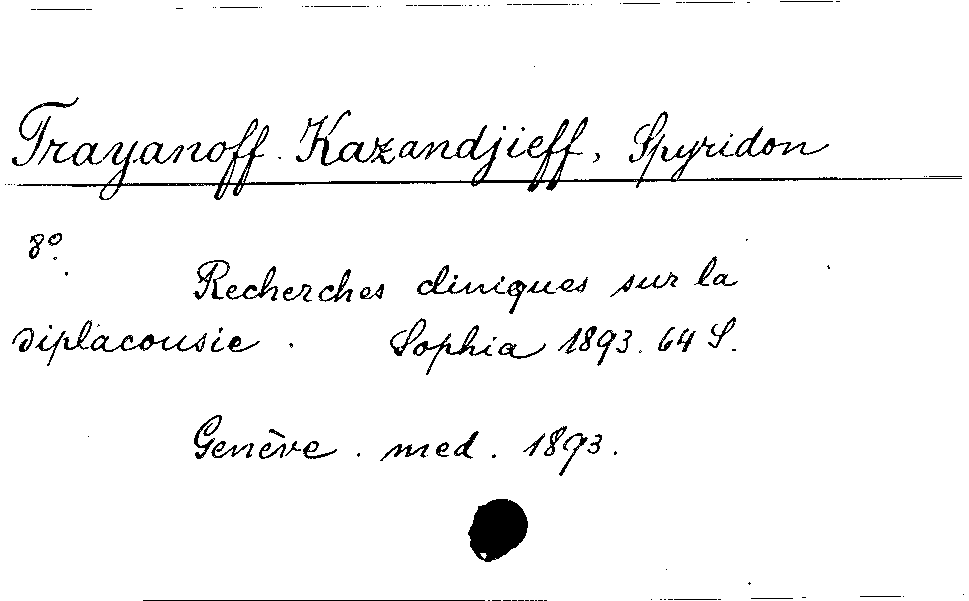 Trayanoff. Kazandjieff, Spyridon
8º.
Recherches cliniques sur la
diplacousie. Sophia 1893. 64 S.
Genève. med. 1893.